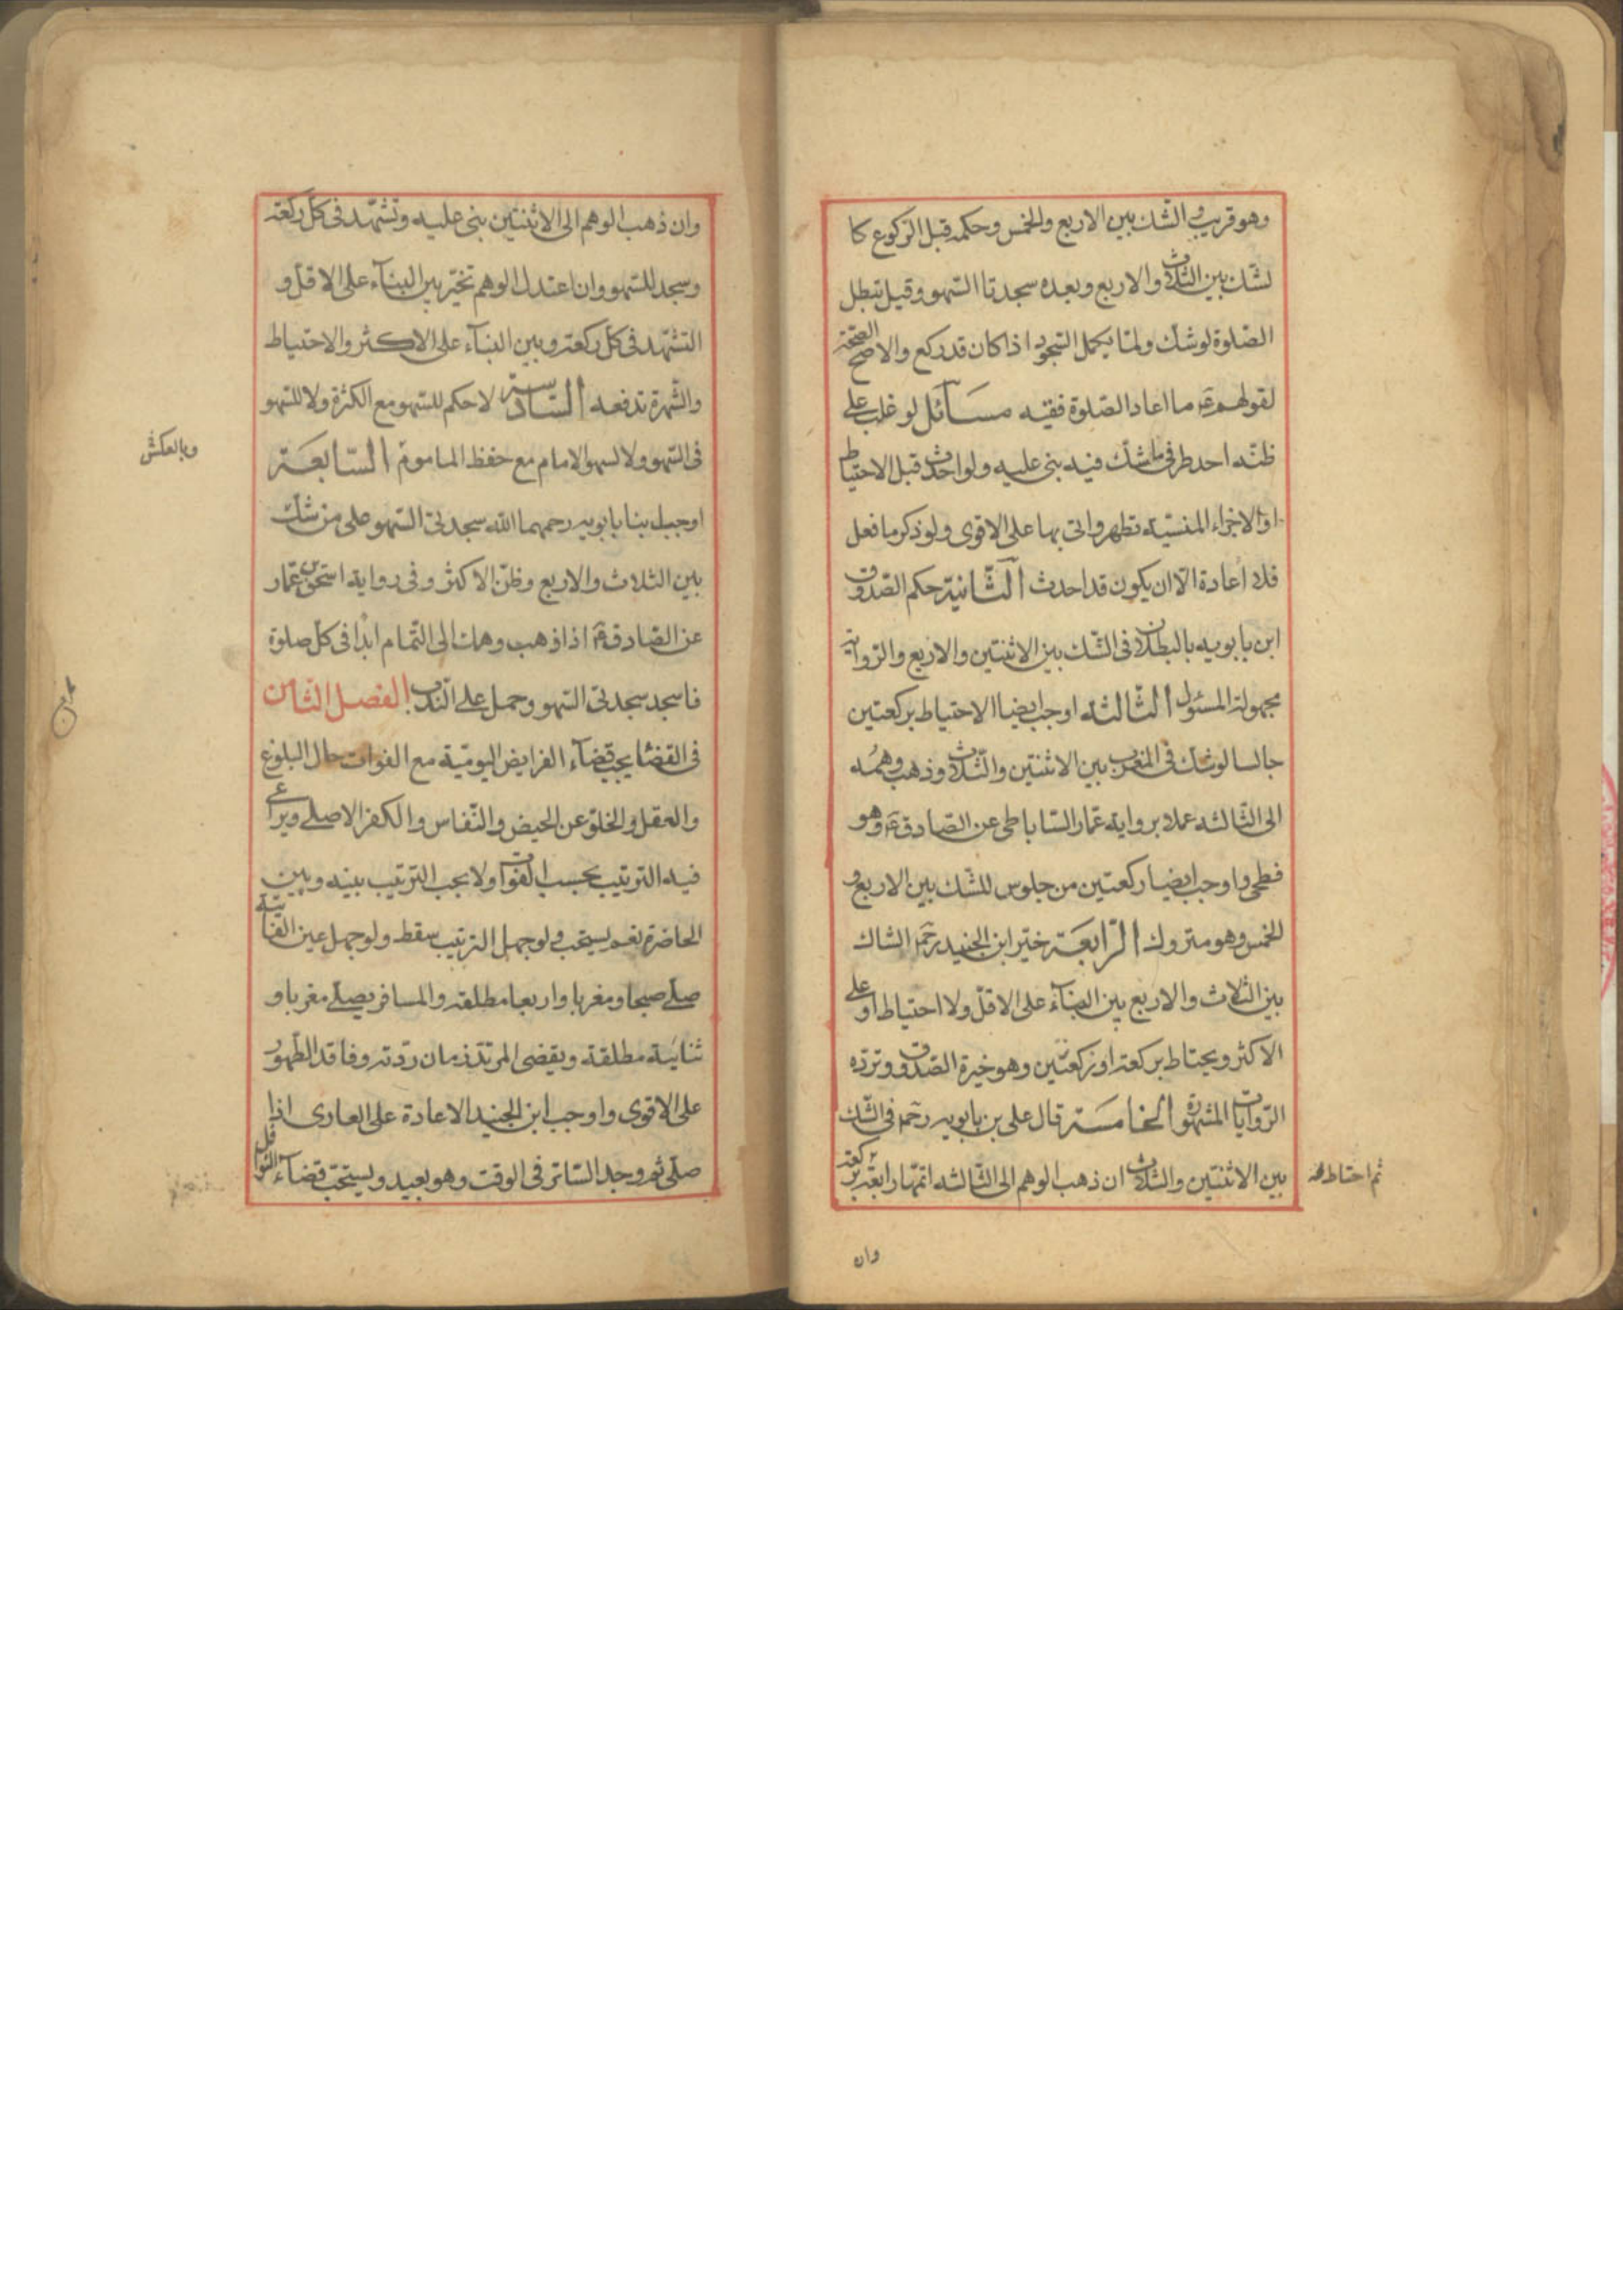 وهو قريب والشك بين الاربع والخمس وحكمه قبل الركوع كا
لشك بين الثلاث والاربع وبعده سجدتا السهو وقيل تبطل
الصلوة لو شك ولما يكمل السجود اذا كان قد ركع والاصح الصحة
لقولهم ع ما اعاد الصلوة فقيه مسائل لو غلب على
ظنه احد طرفى ما شك فيه بنى عليه ولو احدث قبل الاحتياط
او الاجزاء المنسية تطهر واتى بها على الاقوى ولو ذكر ما فعل
فلا اعادة الا ان يكون قد احدث الثانية حكم الصدوق
ابن بابويه بالبطلان فى الشك بين الاثنتين والاربع والرواية
مجهولة المسئول الثالثة اوجب ايضا الاحتياط بركعتين
جالسا لو شك فى المغرب بين الاثنتين والثلاث وذهب وهمه
الى الثالثة عملا برواية عمار الساباطى عن الصادق ع وهو
فطحى واوجب ايضا ركعتين من جلوس للشك بين الاربع و
الخمس وهو متروك الرابعة خير ابن الجنيد رحمه الشاك
بين الثلاث والاربع بين البناء على الاقل ولا احتياط او على
الاكثر ويحتاط بركعة او ركعتين وهو خيرة الصدوق وترده
الروايات المشهورة الخامسة قال على بن بابويه رحمه فى الشك
بين الاثنتين والثلاث ان ذهب الوهم الى الثالثة اتمها رابعة بركعة
ثم احتاط
وان
وان ذهب الوهم الى الاثنتين بنى عليه وتشهد فى كل ركعة
وسجد للسهو وان اعتدل الوهم تخير بين البناء على الاقل و
التشهد فى كل ركعة وبين البناء على الاكثر والاحتياط
والشهرة تدفعه السادسة لا حكم للسهو مع الكثرة ولا للسهو
فى السهو ولا لسهو الامام مع حفظ الماموم السابعة
وبالعكس
اوجب ابنا بابويه رحمهما الله سجدتى السهو على من شك
بين الثلاث والاربع وظن الاكثر وفى رواية اسحق بن عمار
عن الصادق ع اذا ذهب وهمك الى التمام ابدا فى كل صلوة
فاسجد سجدتى السهو وحمل على الندب الفصل الثامن
فى القضا يجب قضاء الفرايض اليومية مع الفوات حال البلوغ
والعقل والخلو عن الحيض والنفاس والكفر الاصلى ويراعى
فيه الترتيب بحسب الفوات ولا يجب الترتيب بينه وبين
الحاضرة نعم يستحب ولو جهل الترتيب سقط ولو جهل عين الفائتة
صلى صبحا ومغربا واربعا مطلقة والمسافر يصلى مغربا و
ثنائية مطلقة ويقضى المرتد زمان ردته وفاقد الطهور
على الاقوى واوجب ابن الجنيد الاعادة على العارى اذا
صلى ثم وجد الساتر فى الوقت وهو بعيد ويستحب قضاء النوافل